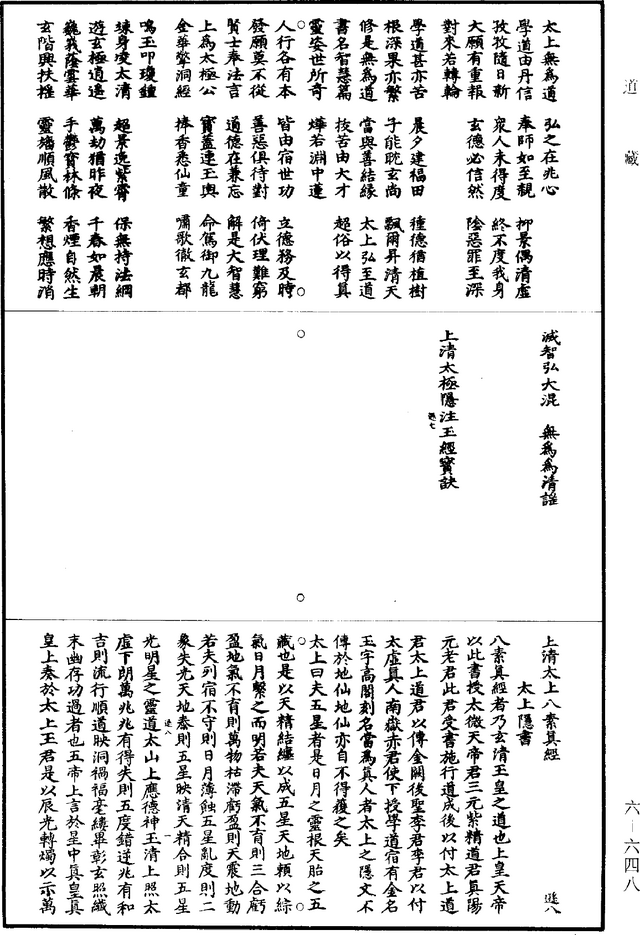 道藏
太上無為道　弘之在兆心　抑景偶清虛
學道由丹信　奉師如至親
孜孜隨日新　衆人未得度　終不度我身
大願有重報　玄德必信然　陰惡罪至深
對來若轉輪
學道甚亦苦　晨夕建福田　種德猶植樹
根深果亦繁　子能眈玄尚　飄爾昇清天
修是無為道　當與善結緣　太上弘至道
書名智慧篇　拔苦由大才　超俗以得真
靈姿世所奇　燁若淵中蓮
人行各有本　皆由宿世功　立德務及時
發願莫不從　善惡俱待對　倚伏理難窮
賢士奉法言　道德在兼忘　解是大智慧
上為太極公　寶蓋連玉輿　命駕御九龍
金華擎洞經　捧香悉仙童　嘯歌徹玄都
鳴玉叩瓊鐘
竦身凌太清　超景逸紫霄　保無持法綱
遊玄極逍遙　萬劫猶昨夜　千春如晨朝
巍峩蔭雲華　手鬱寶林條　香煙自然生
玄階興扶搖　靈旛順風散　繁想應時消
滅智弘大混　無為為清謠
上清太極隱注玉經寶訣
遜七
上清太上八素真經　遜八
太上隱書
八素真經者乃玄清玉皇之道也上皇天帝
以此書授太微天帝君三元紫精道君真陽
元老君此君受書施行道成後以付太上道
君太上道君以傳金闕後聖李君李君以付
太虛真人南嶽赤君使下授學道宿有金名
玉字高閣刻名當為真人者太上之隱文不
傳於地仙地仙亦自不得獲之矣
太上曰夫五星者是日月之靈根天胎之五
藏也是以天精結纏以成五星天地賴以綜
氣日月繫之而明若夫天氣不育則三合虧
盈地氣不育則萬物枯滯虧盈則天震地動
若夫列宿不守則日月薄蝕五星亂度則二
象失光天地泰則五星映清天精合則五星
光明星之靈道太山上應德神玉清上照太
遜八　一
虛下朗萬兆兆有得失則五度錯逆兆有和
吉則流行順道映洞禍福毫縷畢彰玄照纖
末幽存功過者也五帝上言於星中真皇真
皇上奏於太上玉君是以辰光轉燭以示萬
六—六四八